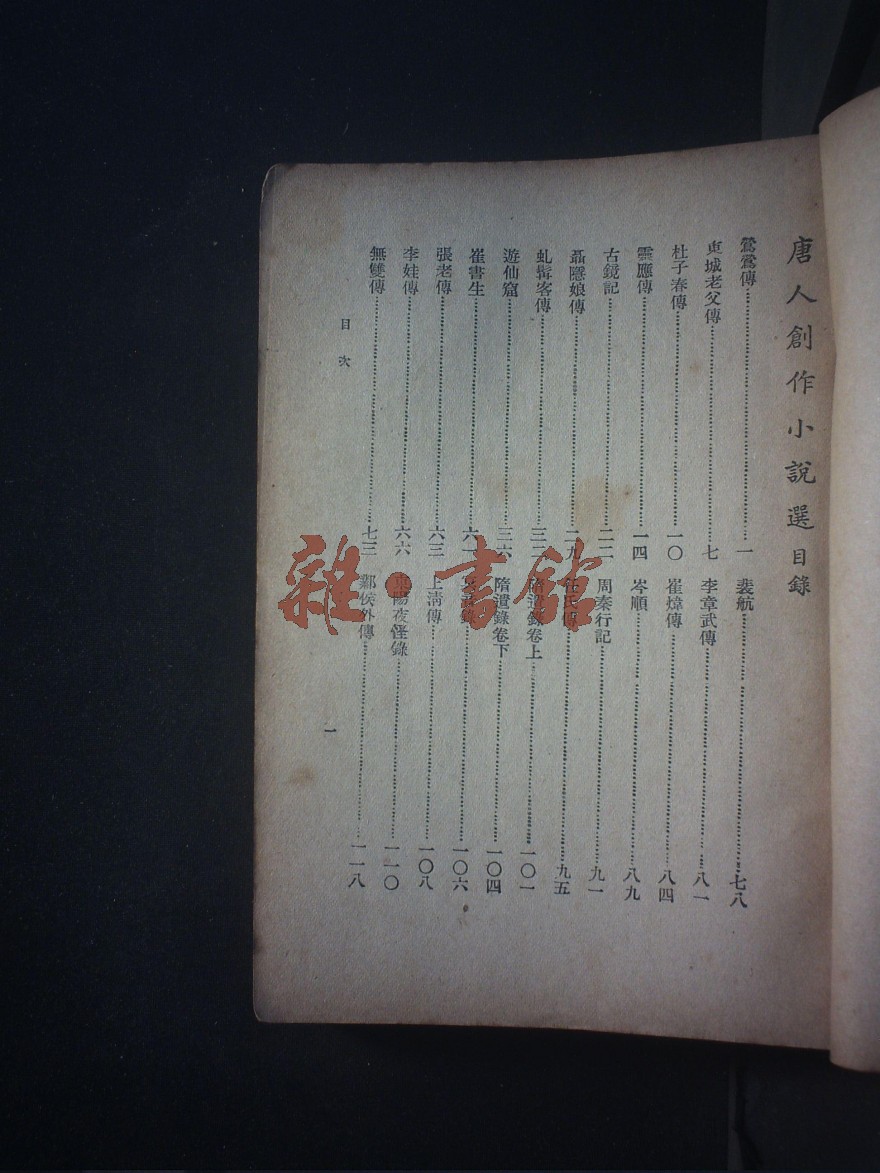 唐人創作小說選目錄
鶯鶯傳……一
東城老父傳……七
杜子春傳……一〇
靈應傳……一四
古鏡記……二二
聶隱娘傳……二九
虬髯客傳……三二
遊仙窟……三六
崔書生……六一
張老傳……六三
李娃傳……六六
無雙傳……七三
裴航……七八
李章武傳……八一
崔煒傳……八四
岑順……八九
周秦行記……九一
任氏傳……九五
隋遺錄卷上……一〇一
隋遺錄卷下……一〇四
錄……一〇六
上清傳……一〇八
東陽夜怪錄……一一〇
鄴侯外傳……一一八
目次
一
雜·書館